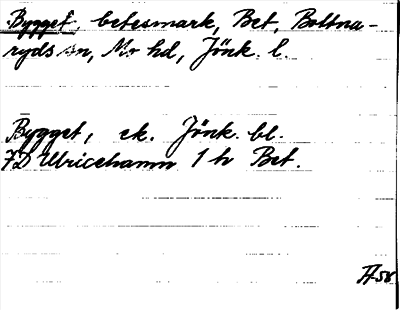 Bygget, betesmark, Bet, Bottna-
ryds sn, Mo hd, Jönk. l.
Bygget, ek. Jönk. bl.
7D Ulricehamn 1 h Bet.
58